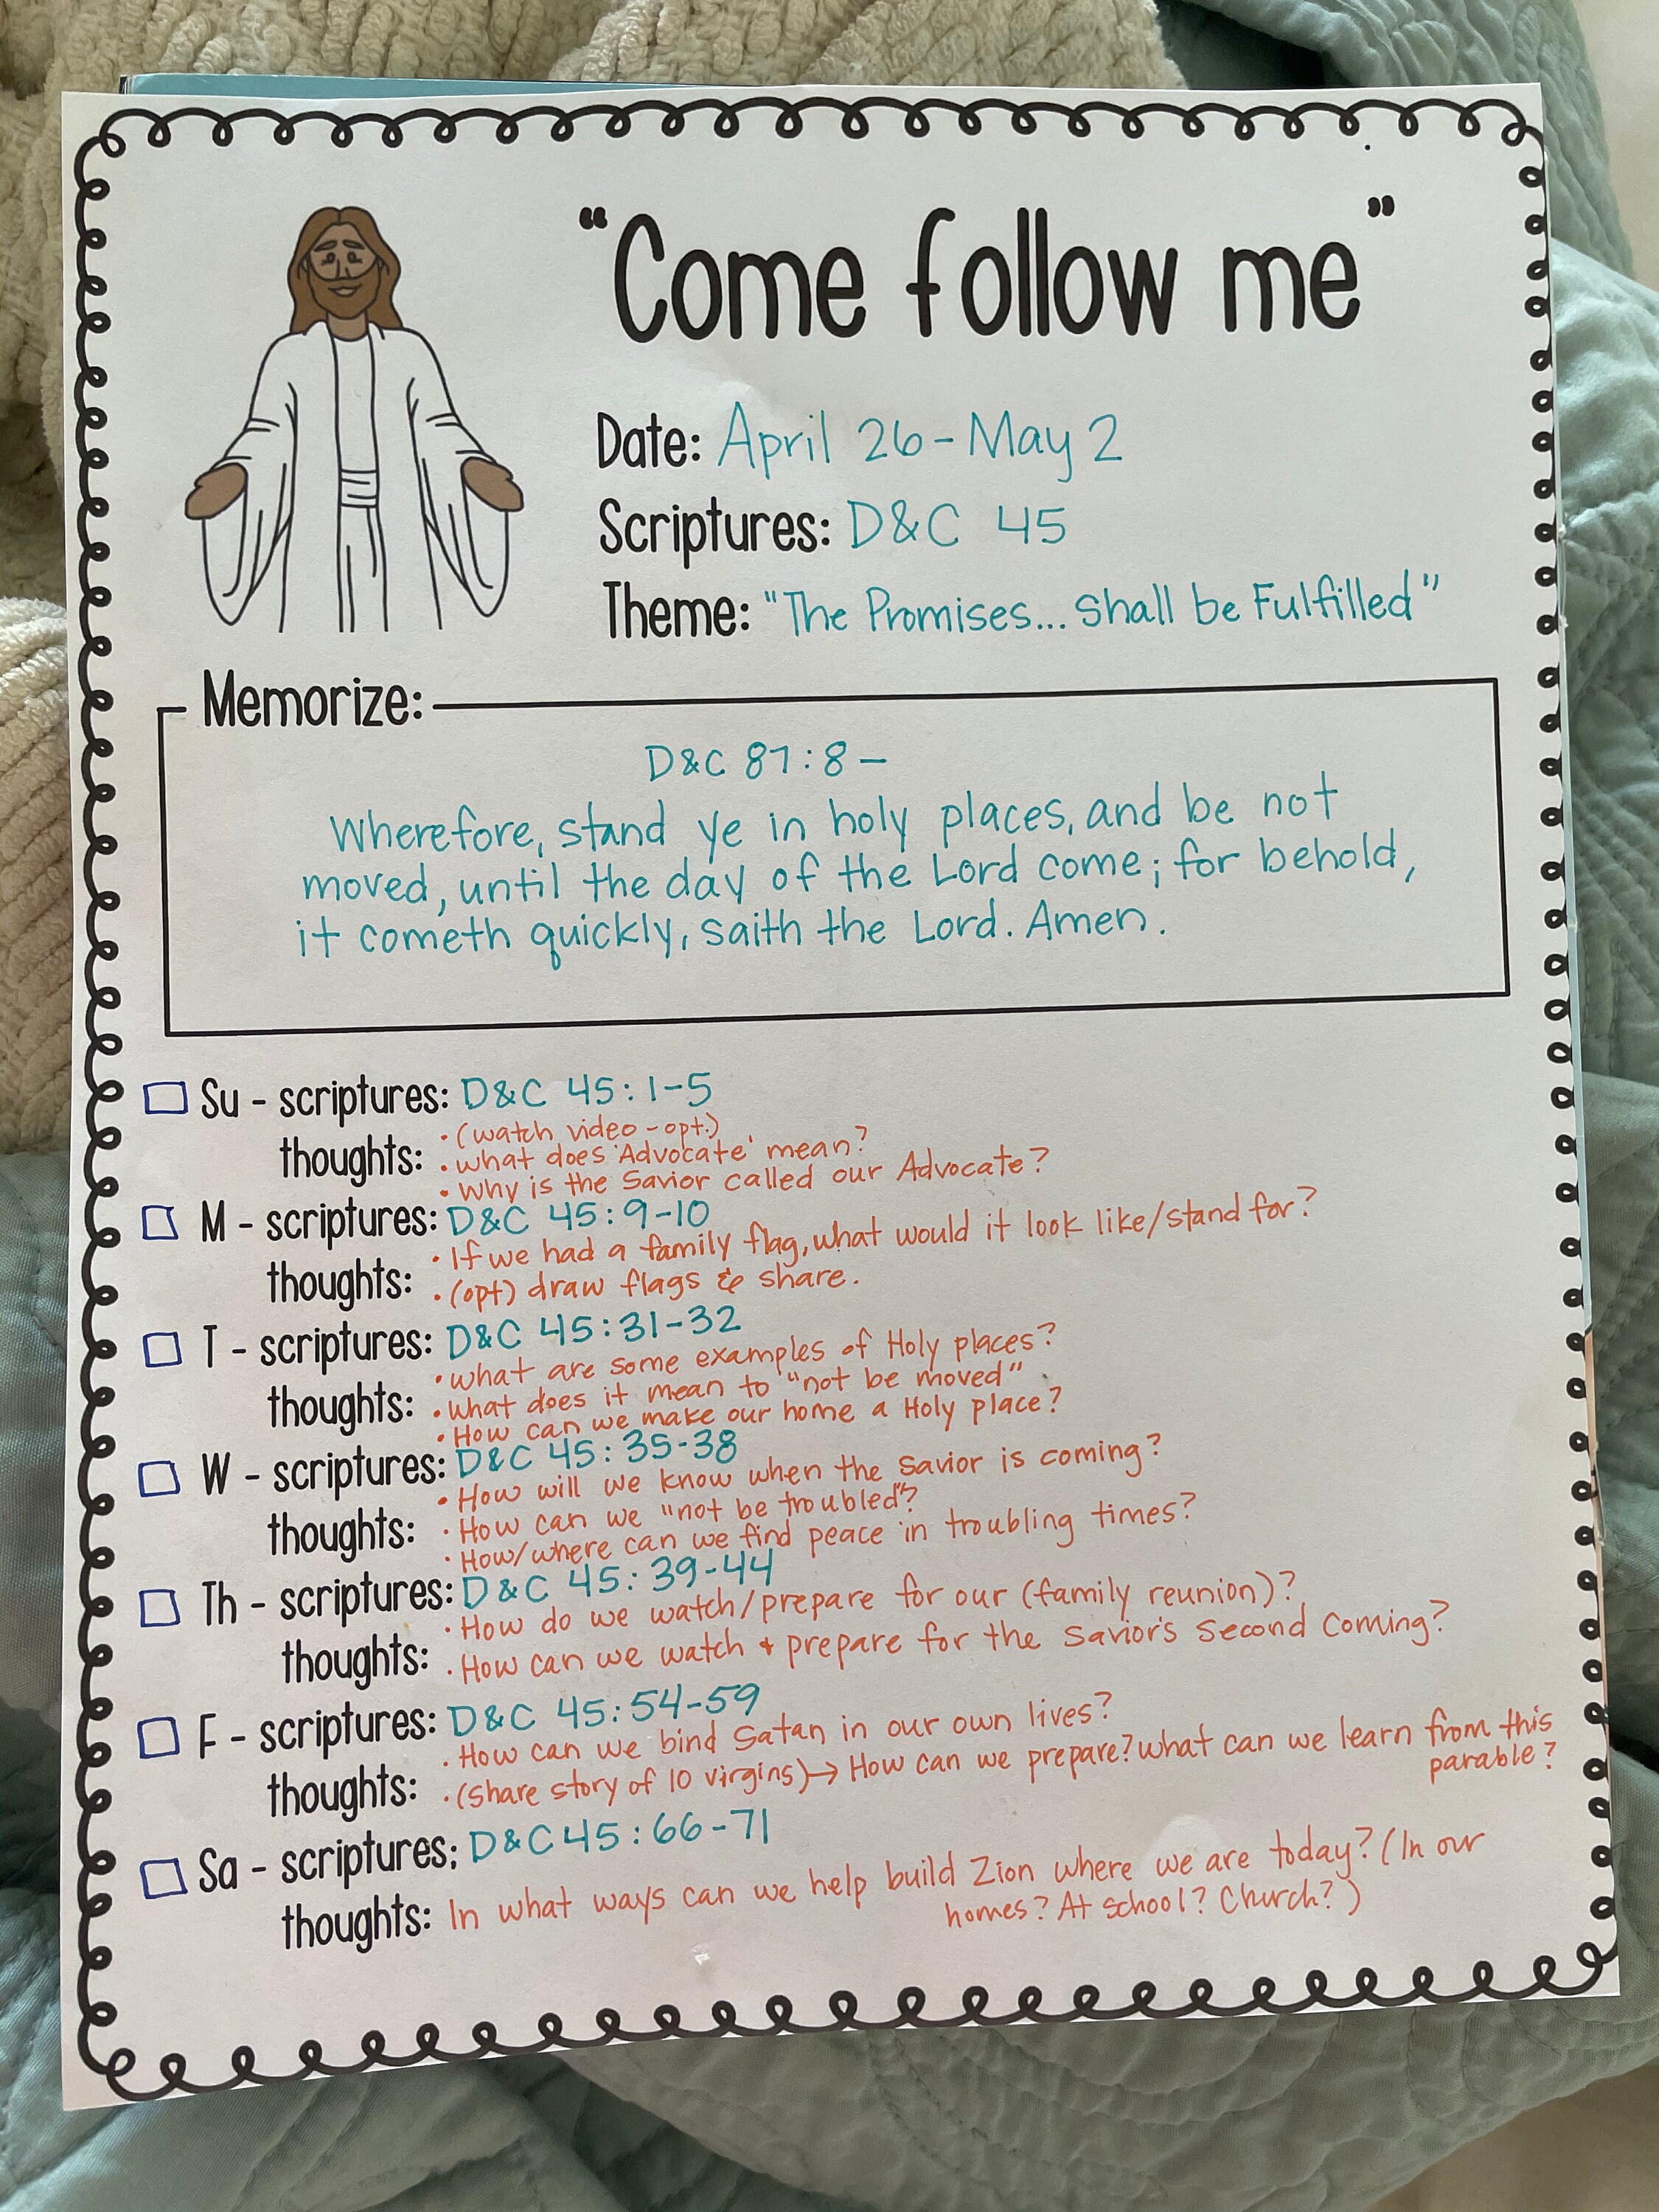 "Come follow me"
Date: April 26 - May 2
Scriptures: D&C 45
Theme: "The Promises... Shall be Fulfilled"
Memorize:
D&C 87:8 -
Wherefore, stand ye in holy places, and be not
moved, until the day of the Lord come; for behold,
it cometh quickly, saith the Lord. Amen.
Su - scriptures: D&C 45:1-5
• (watch video - opt.)
thoughts: • what does 'Advocate' mean?
• Why is the Savior called our Advocate?
M - scriptures: D&C 45:9-10
• If we had a family flag, what would it look like/stand for?
thoughts: • (opt) draw flags & share.
T - scriptures: D&C 45:31-32
• what are some examples of Holy places?
thoughts: • what does it mean to "not be moved"
• How can we make our home a Holy place?
W - scriptures: D&C 45:35-38
• How will we know when the Savior is coming?
thoughts: • How can we "not be troubled"?
• How/where can we find peace in troubling times?
Th - scriptures: D&C 45:39-44
• How do we watch/prepare for our (family reunion)?
thoughts: • How can we watch + prepare for the Savior's Second Coming?
F - scriptures: D&C 45:54-59
• How can we bind Satan in our own lives?
thoughts: • (Share story of 10 virgins) → How can we prepare? what can we learn from this
parable?
Sa - scriptures: D&C 45:66-71
thoughts: In what ways can we help build Zion where we are today? (In our
homes? At school? Church?)